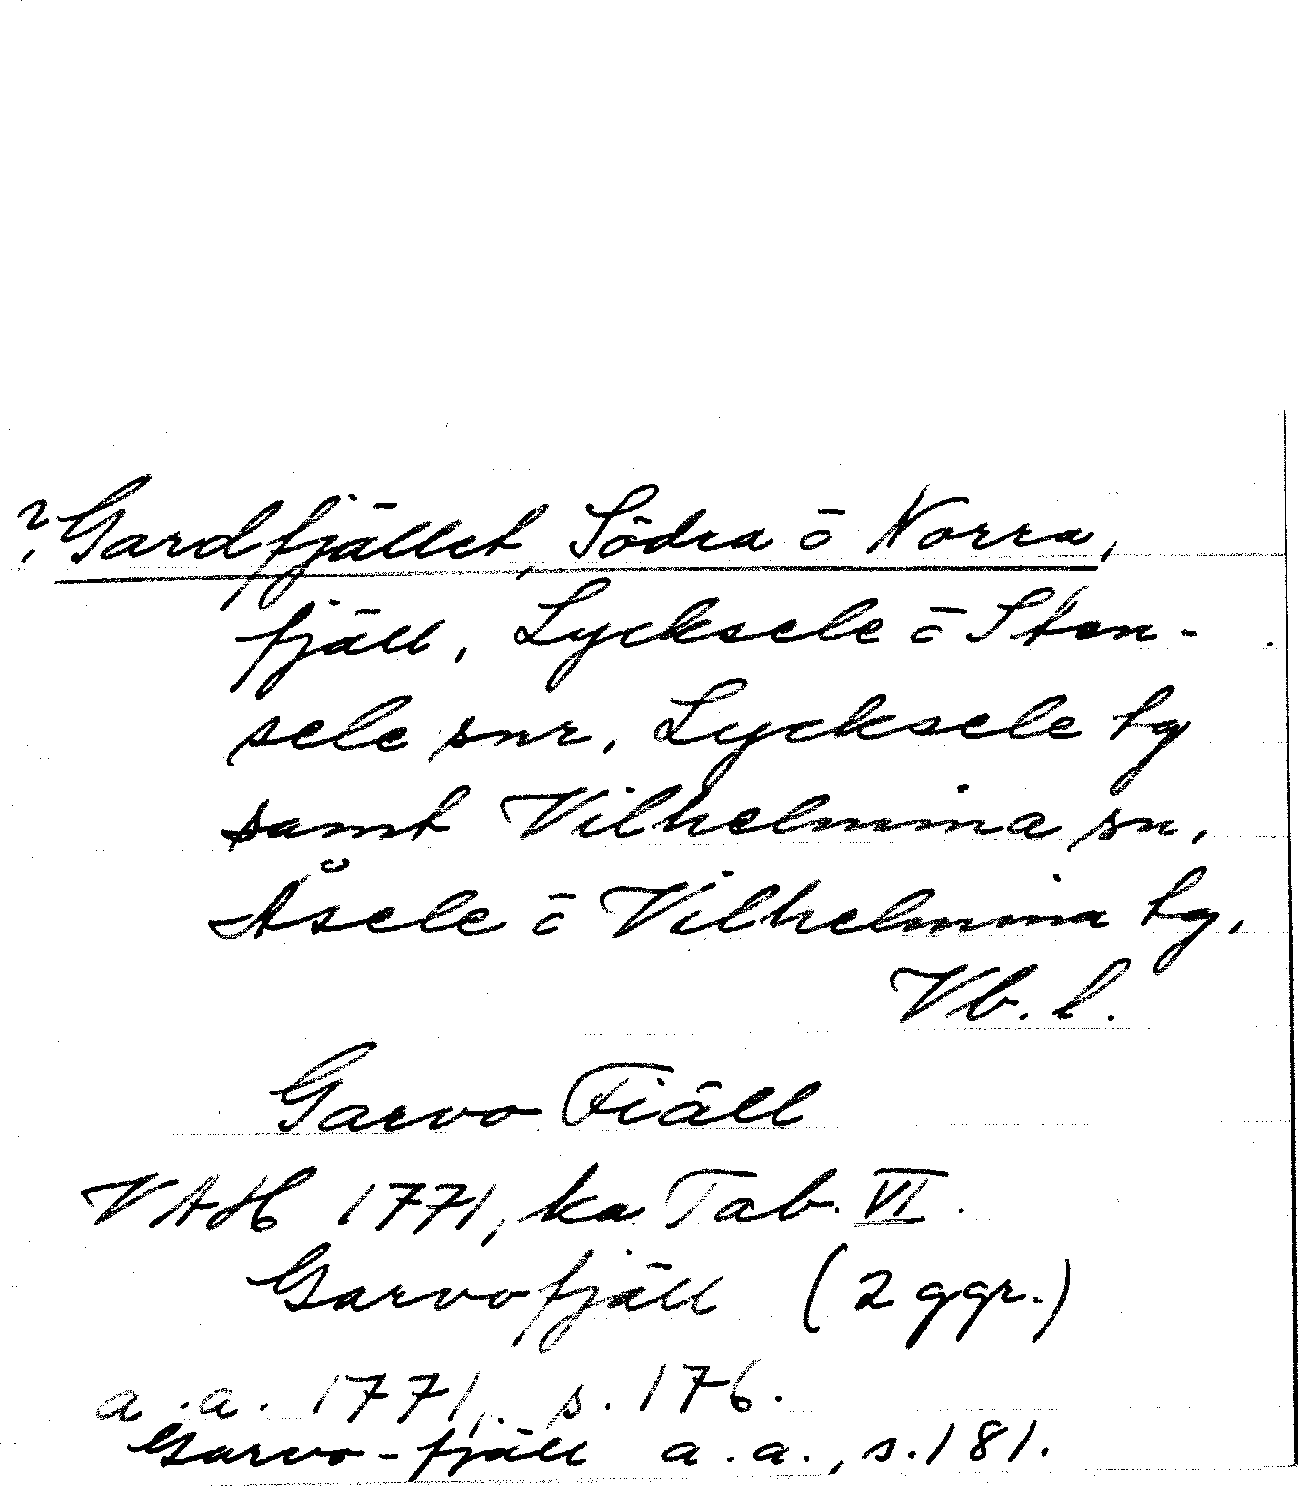 ? Gardfjället, Södra o Norra,
fjäll, Lycksele o Sten-
sele snr, Lycksele tg
samt Vilhelmina sn,
Åsele o Vilhelmina tg,
Vb. l.
Garvo Fiäll
VAH 1771, ka Tab. VI.
Garvofjäll (2 ggr.)
a.a. 1771, s. 176.
Garvo-fjäll a.a., s. 181.